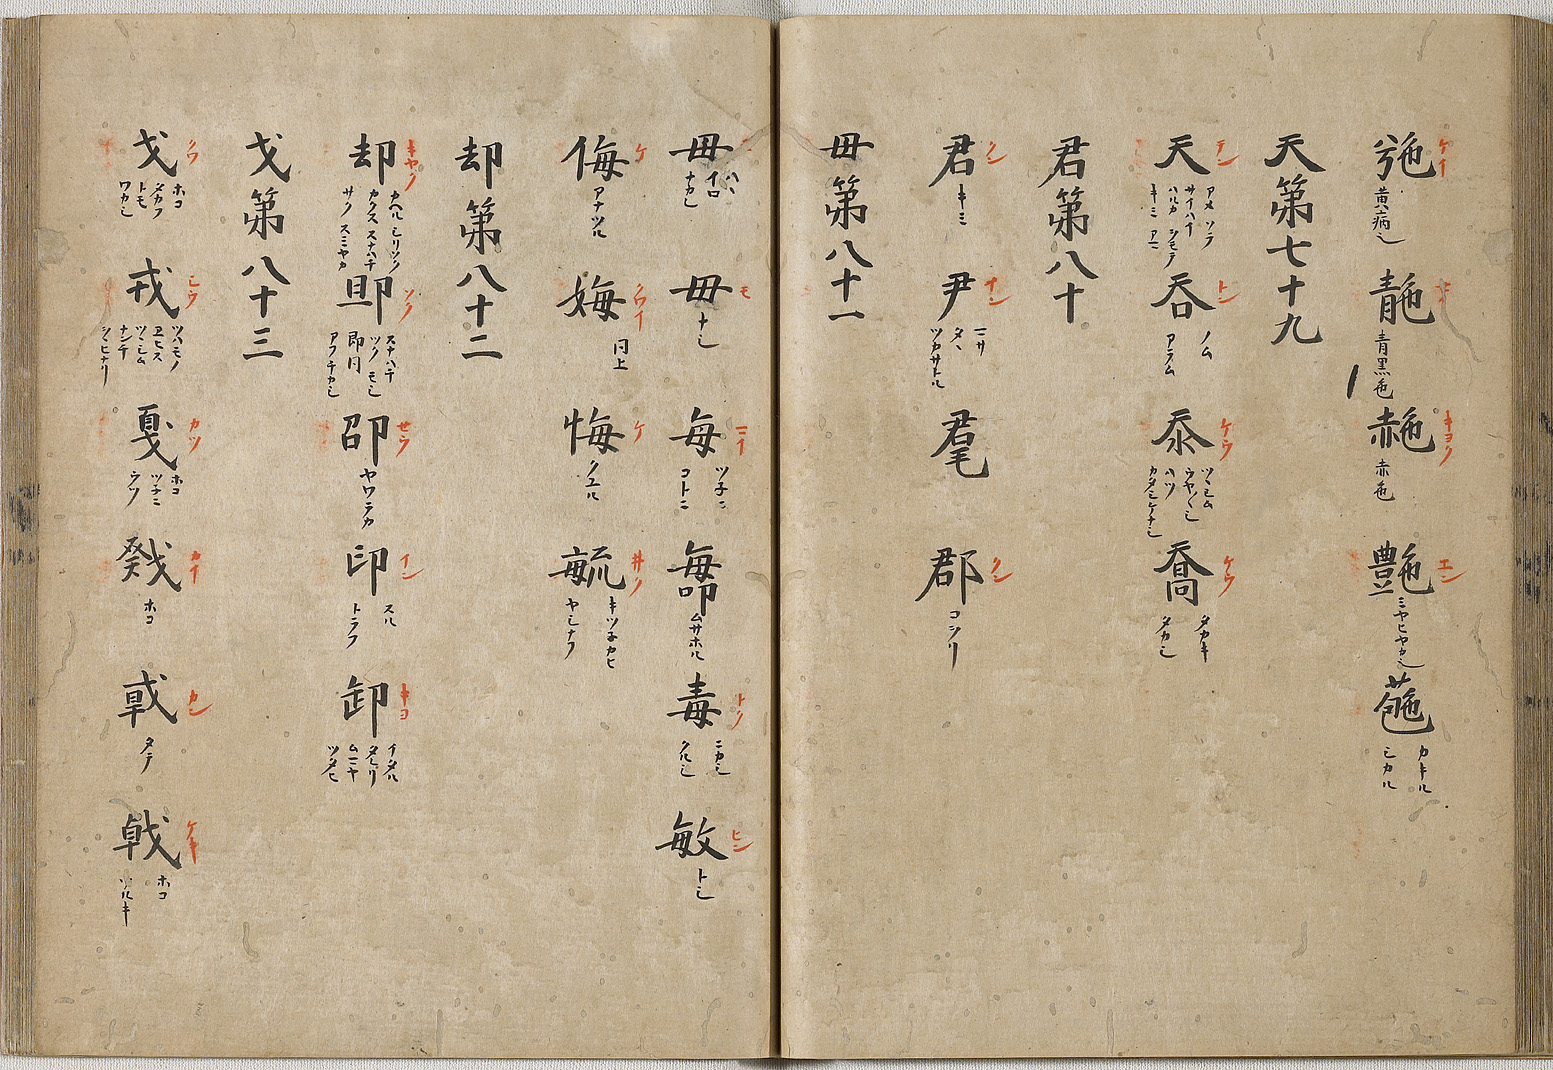 黄病也
青黒色
赤 赤色
天第七十九
天 テン アメ ソラ サイハイ ハルカ シモテ キミ
呑 トン ノム アラム
忝 ケウ ツヽシム ウヤ〳〵シ ハツ カタシケナシ
喬 ケウ タカキ タカシ
君第八十
君 クン キミ
尹 イン タヽ ツカサトル
君毛
郡 クン コシリ
毋第八十一
毋 ハヽ イロ ナカレ
毋 モ ナシ
毎 ツネニ コトニ
毒 トク ニカシ クルシ
敏 ヒン トシ
侮 ケ アナツル
娒 クワイ 同上
悔 ケ クユル
毓 井ク キツネカヒ ヤシナフ
却第八十二
却 キヤク カヘル シリソク カクス スナハチ サク スミヤカ
即 ソク スナハチ ツク モシ 即同
卲 せウ ヤワラカ
印 イン スル トラフ
卸 キヨ イタル
戈第八十三
戈 クワ ホコ タカフ トモ ワカシ
戎 シウ ツハモノ ヱヒス ツヽシム ナンチ
戛 カツ ホコ ツヽミ ウツ
戣 カイ ホコ
カン タテ
戟 ケキ ホコ ツルキ